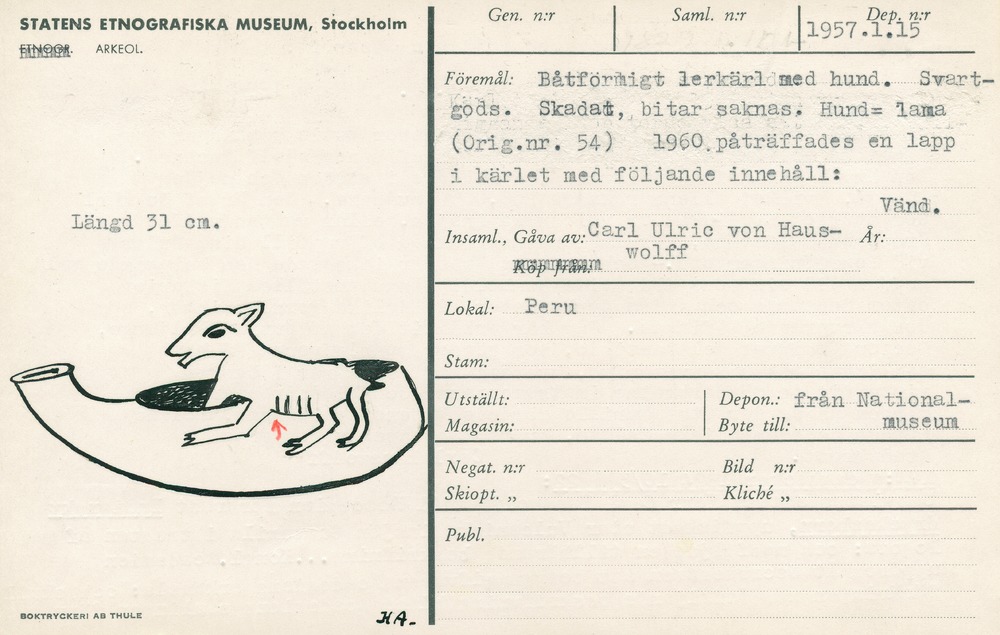 STATENS ETNOGRAFISKA MUSEUM, Stockholm
ETNOGR. ARKEOL.
Längd 31 cm.
BOKTRYCKERI AB THULE
HA.
Gen. n:r Saml. n:r Dep. n:r
1957.1.15
Föremål: Båtförmigt lerkärl med hund. Svart-
gods. Skadat, bitar saknas. Hund= lama
(Orig.nr. 54) 1960 påträffades en lapp
i kärlet med följande innehåll:
Vänd.
Insaml., Gåva av: Carl Ulric von Haus- År:
wolff
Köp från:
Lokal: Peru
Stam:
Utställt: Depon.: från National-
Magasin: Byte till: museum
Negat. n:r Bild n:r
Skiopt. „ Kliché „
Publ.